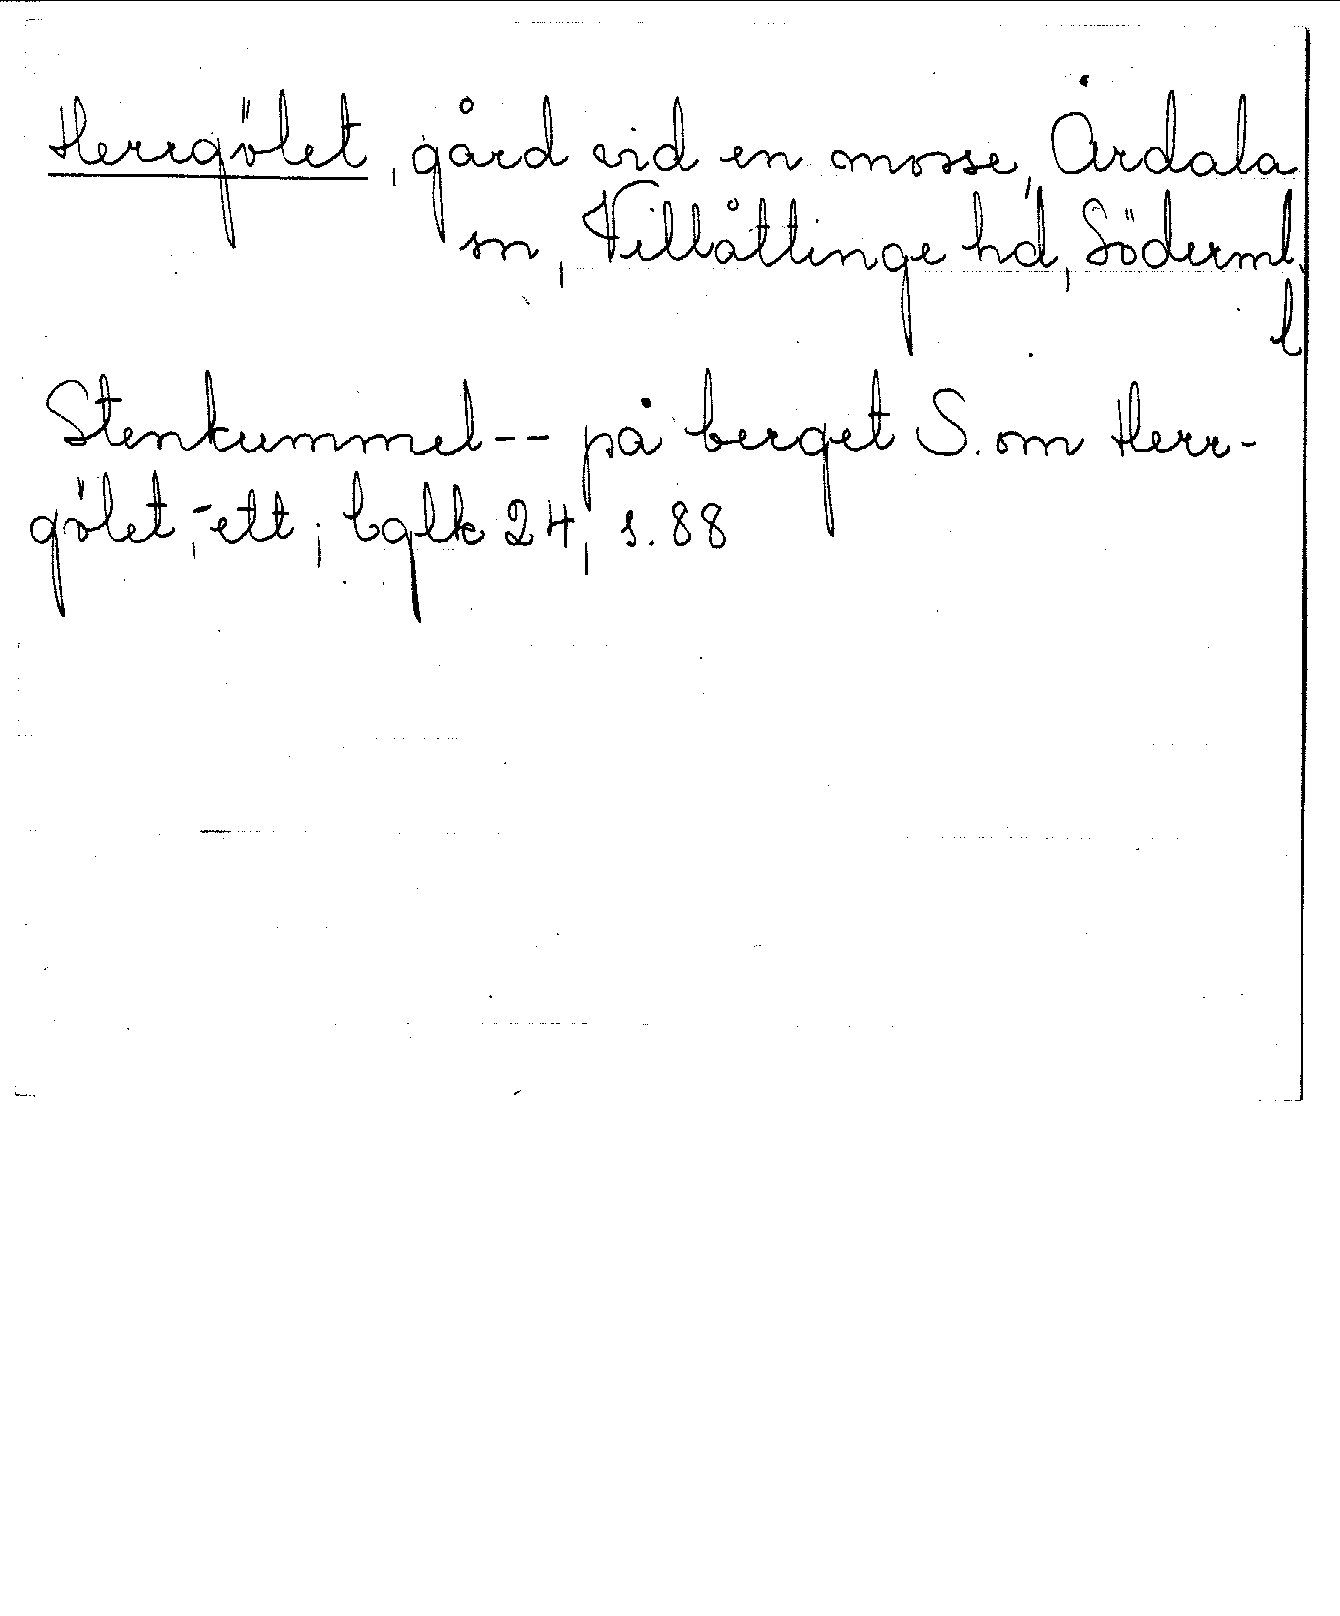 Herrgölet, gård vid en mosse, Årdala
sn, Villåttinge hd, Söderml.
l
Stenkummel-- på berget S. om Herr-
gölet,-ett; bglk 24, s. 88